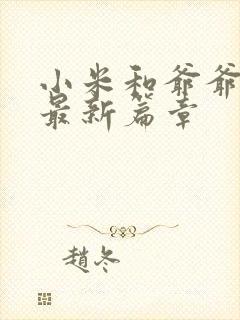 小米和爷爷
最新篇章
趙冬